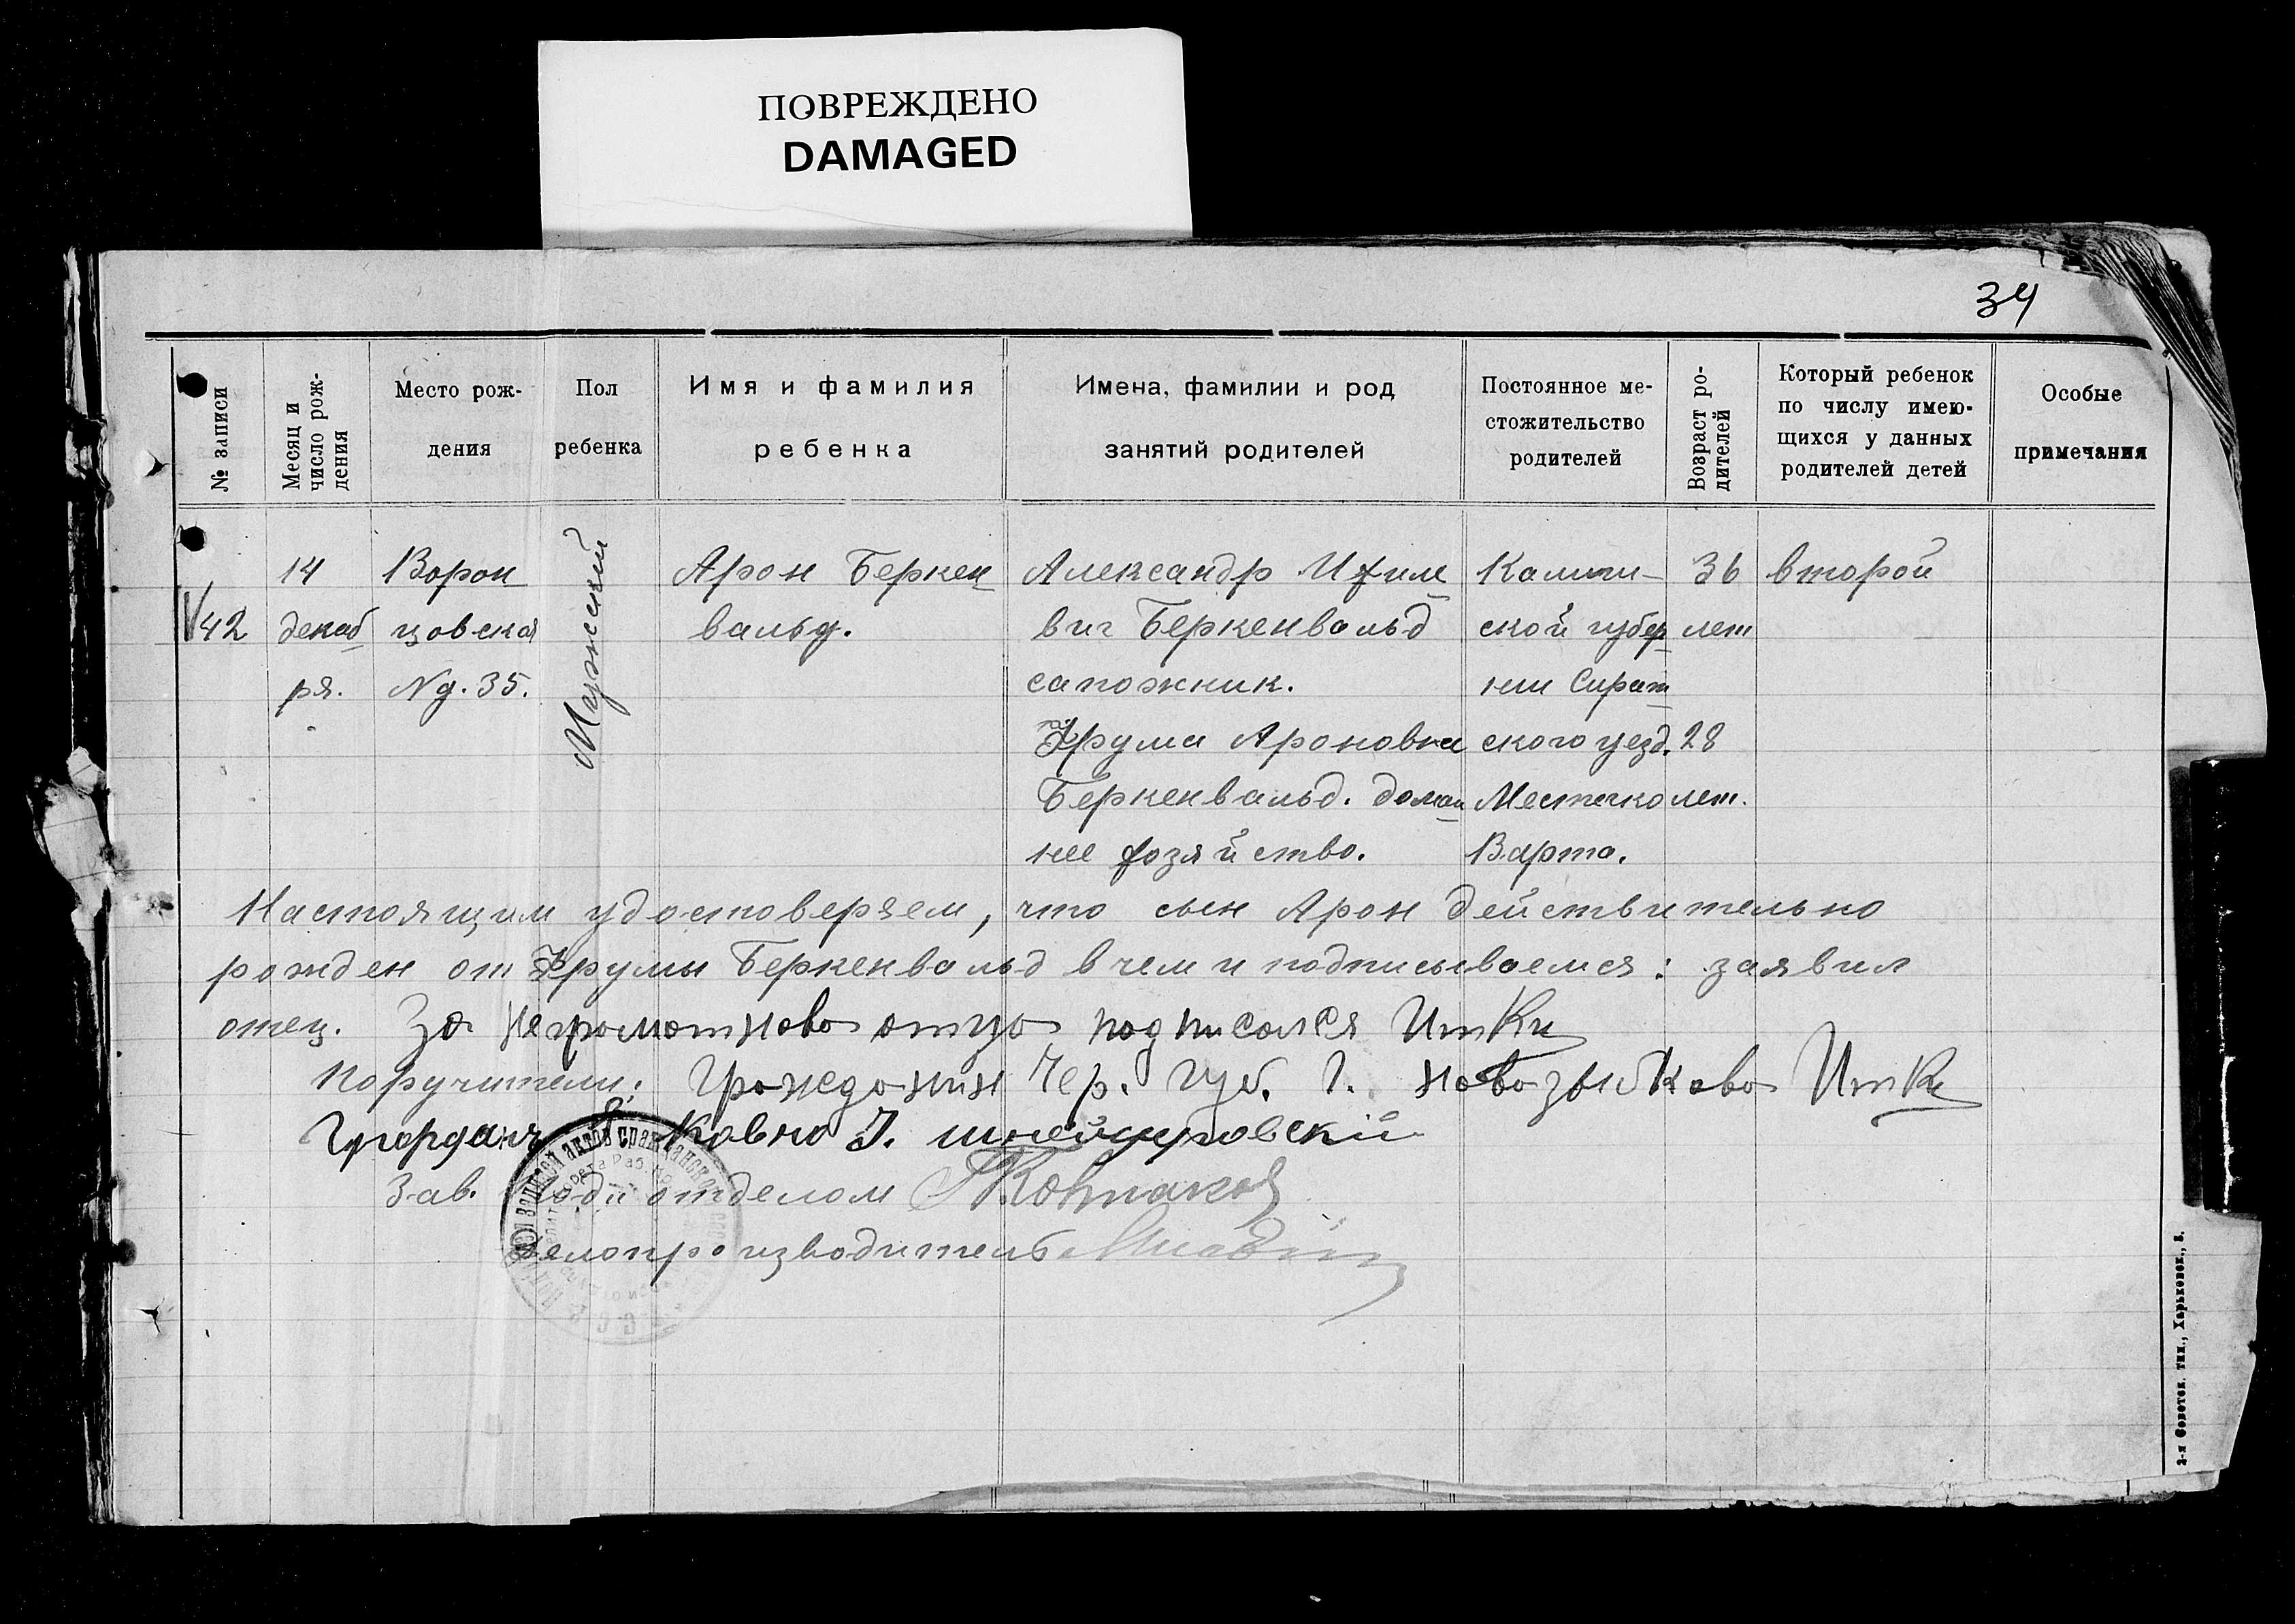 ПОВРЕЖДЕНО
DAMAGED
34
№ записи
Месяц и
число рож-
дения
Место рож-
дения
Пол
ребенка
Имя и фамилия
ребенка
Имена, фамилии и род
занятий родителей
Постоянное ме-
стожительство
родителей
Возраст ро-
дителей
Который ребенок
по числу имею-
щихся у данных
родителей детей
Особые
примечания
42
14
декаб
ря.
Ворон
цовская
№ д. 35.
Мужской
Арон Беркен
вальд.
Александр
вич Беркенвальд
сапожник.
Фрума Ароновна
Беркенвальд. домаш
нее хозяйство.
Калиш-
ской губер
нии Сират
ского уезд.
Местечко
Варта.
36
лет
28
лет.
второй
Настоящим удостоверяем, что сын Арон действительно
рожден от Фрумы Беркенвальд в чем и подписываемся: заявил
отец. За неграмотново отца подписался Итки
Поручители: Гражданин Чер. Губ. Г. Новозыбково Итки
Ковно
Зав. Подотделом
Делопроизводитель
2-я Советск. тип., Харьковск., 5.